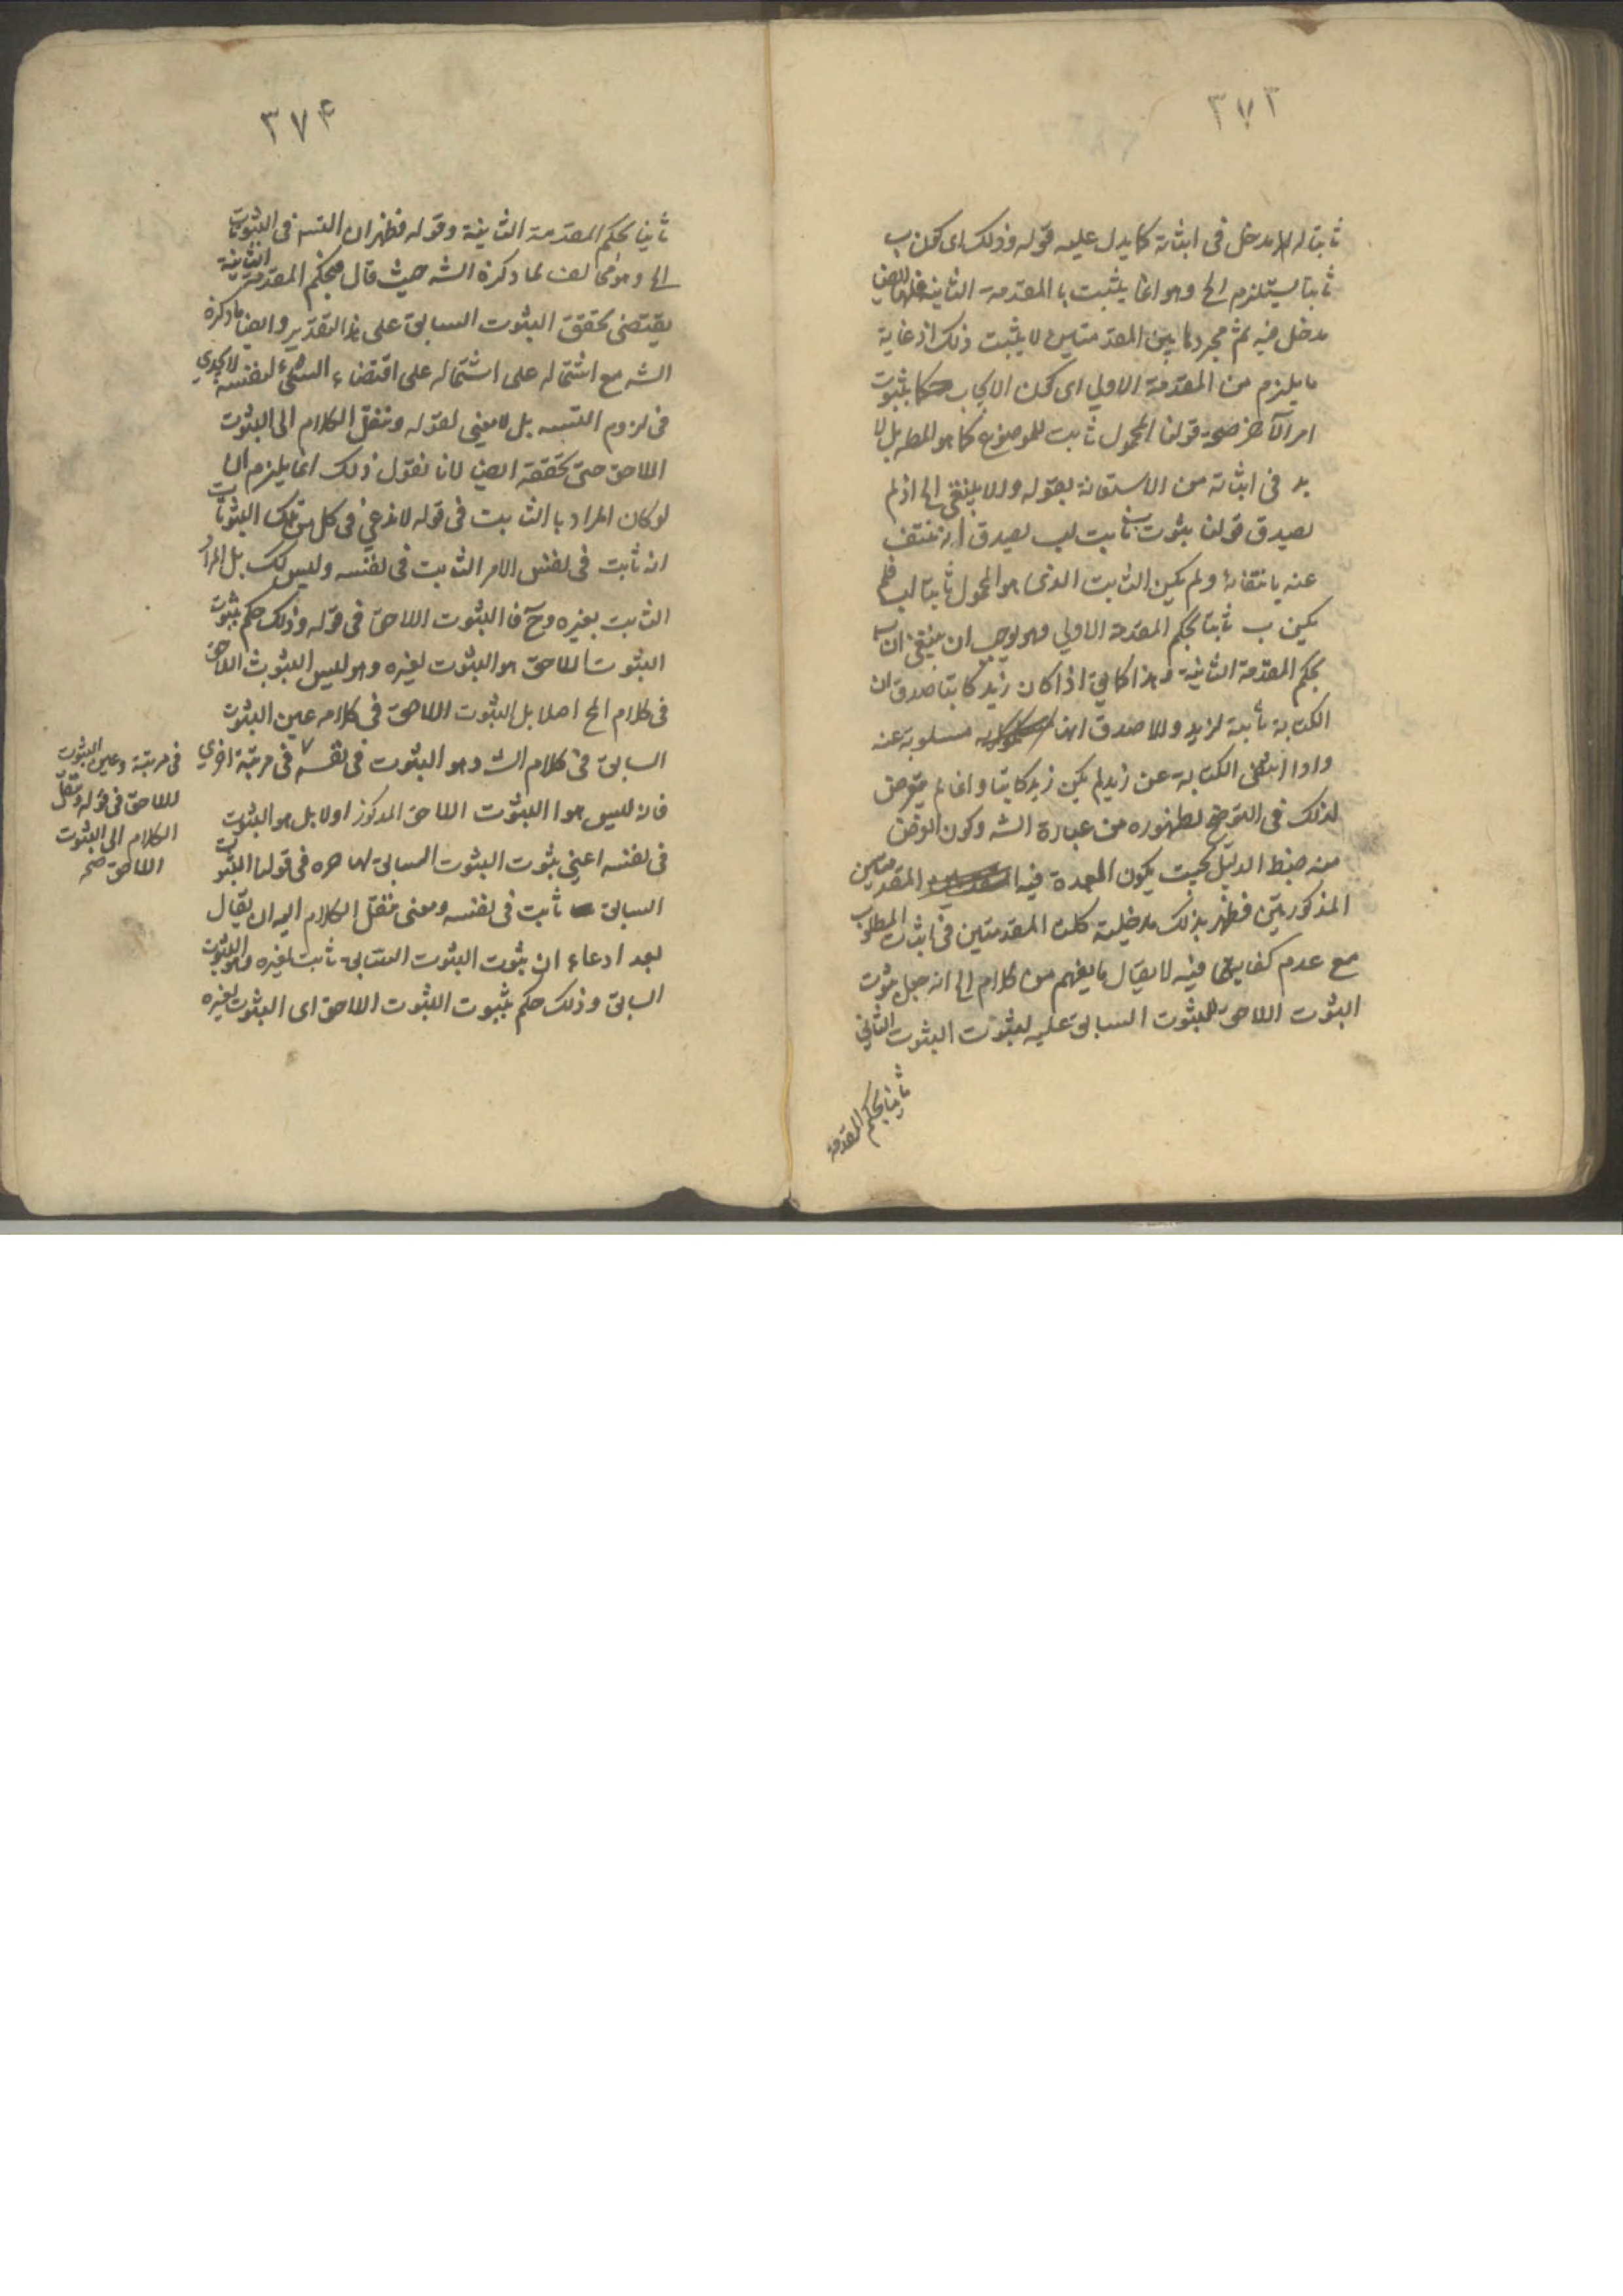 ٣٧٣
ثابتا له لها مدخل فى اثباته كما يدل عليه قوله وذلك اى كون ب
ثابتا يستلزم الخ وهو انما يثبت با المقدمة الثانية فلها ايضا
مدخل فيه ثم مجرد هاتين المقدمتين لا يثبت ذلك اذ غاية
ما يلزم من المقدمة الاولي اى كون الايجاب حكما بثبوت
امر لآخر صحة قولنا المحمول ثابت للموضوع كما هو المط بل لا
بد فى اثباته من الاستعانة بقوله والا ينتفى الخ اذ لم
يصدق قولنا بثوت ب ثابت لب يصدق انه منتف
عنه بانتفائه ولم يكن الثابت الذى هو المحمول ثابتا لب فلم
يكن ب ثابتا بحكم المقدمة الاولي وهو يوجب ان ينتفى ان ب
بحكم المقدمة الثانية وهذا كما في اذا كان زيد كاتبا صدق ان
الكتابة ثابتة لزيد والا صدق انها مسلوبة عنه
واذا انتفى الكتابة عن زيد لم يكن زيد كاتبا وانما لم يتعرض
لذلك فى التوضيح لظهوره من عبارة الشه وكون الغرض
منه ضبط الدليل بحيث يكون العمدة فيه المقدمتين
المذكورتين فظهر بذلك مدخلية كلتا المقدمتين فى اثبات المطلوب
مع عدم كفايتهما فيه لا يقال ما يفهم من كلام الخ انه جعل ثبوت
الثبوت اللاحق للثبوت السابق عليه لثبوت الثبوت الثانى
ثانيا بحكم المقدمة
٣٧٤
ثانيا بحكم المقدمة الثانية وقوله فظهر ان التسه فى الثبوتات
الخ وهو مخالف لما ذكره الشه حيث قال فبحكم المقدمة الثانية
يقتضى تحقق الثبوت السابق على هذا التقدير وايضا ما ذكره
الشه مع اشتماله على اشتماله على اقتضاء الشىء لنفسه لا يجدي
فى لزوم التسه بل لا معنى لقوله وننقل الكلام الى الثبوت
اللاحق حتى تحققه ايضا لانا نقول ذلك انما يلزم ان
لو كان المراد با الثابت فى قوله لاندعي فى كل من تلك الثبوتات
انه ثابت فى نفس الامر الثابت فى نفسه وليس كك بل المراد
الثابت بغيره وح فا الثبوت اللاحق فى قوله وذلك حكم بثبوت
الثبوت اللاحق هو الثبوت لغيره وهو ليس الثبوت اللاحق
فى كلام الخ اصلا بل الثبوت اللاحق فى كلامه عين الثبوت
السابق فى كلام الشه وهو الثبوت فى نفسه ٧ فى مرتبة اخري
فانه ليس هو الثبوت اللاحق المذكور اولا بل هو الثبوت
فى نفسه اعني بثوت الثبوت السابق فى قولنا الثبوت
السابق ثابت فى نفسه ومعنى ننقل الكلام اليه ان يقال
بعد ادعاء ان بثوت الثبوت السابق ثابت لغيره وهو الثبوت
السابق وذلك حكم بثبوت الثبوت اللاحق اى الثبوت لغيره
فى مرتبة وعين الثبوت
اللاحق فى قوله وننقل
الكلام الى الثبوت
اللاحق صح